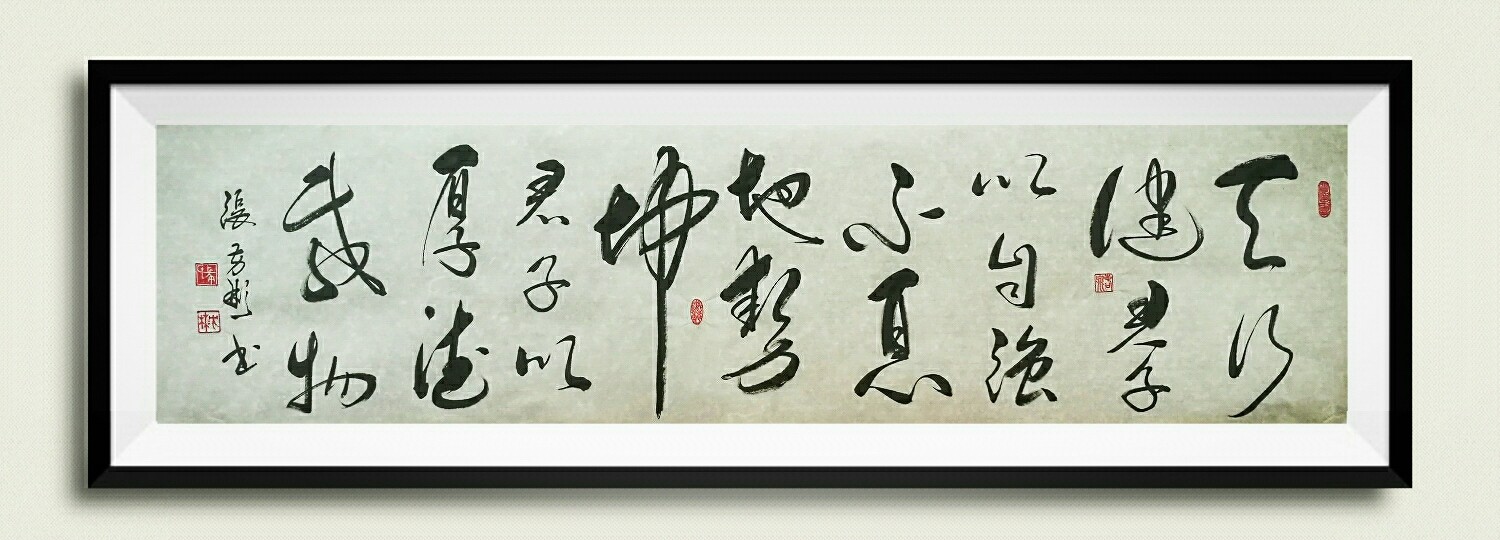 天行
健君子
以自强
不息
地勢
坤
君子以
厚德
載物
張芳彬書